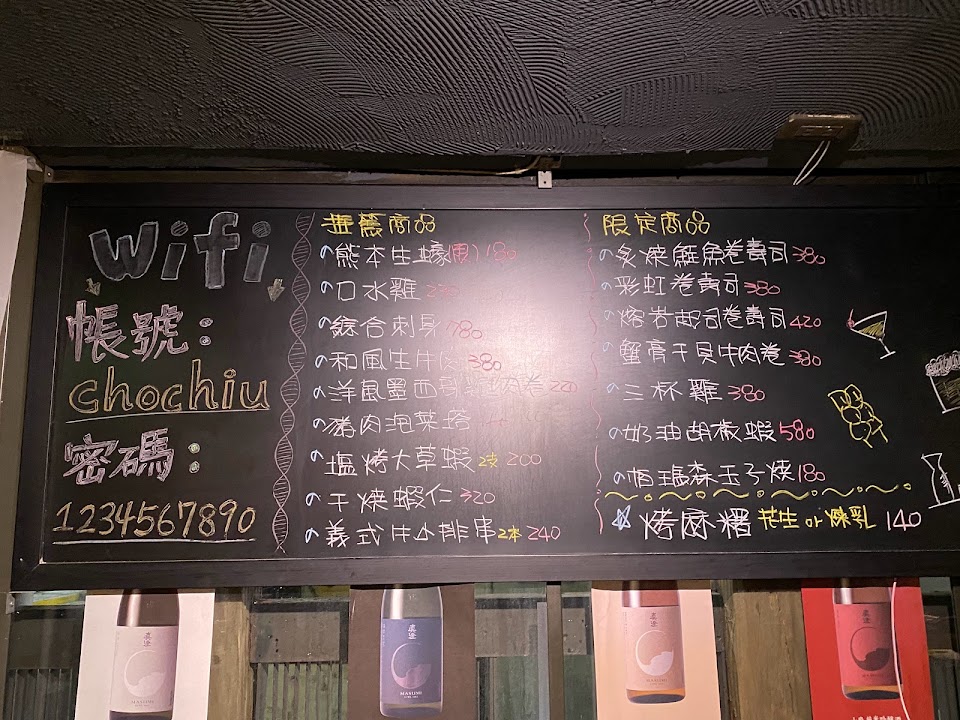 wifi
帳號:
chochiu
密碼:
1234567890
推薦商品
熊本生蠔(買) 180
口水雞
綜合刺身 780
和風生牛肉 380
洋風墨西哥雞肉卷 220
豬肉泡菜塔
塩烤大草蝦 2支 200
干燒蝦仁 320
義式牛小排串 2本 240
限定商品
炙燒鮭魚卷壽司 380
彩虹卷壽司 380
熔岩起司卷壽司 420
蟹膏干貝牛肉卷 380
三杯雞 380
奶油胡椒蝦 580
明太子玉子燒 180
烤麻糬 花生 or 煉乳 140
真澄
MASUMI
真澄
MASUMI
真澄
MASUMI
真澄
MASUMI